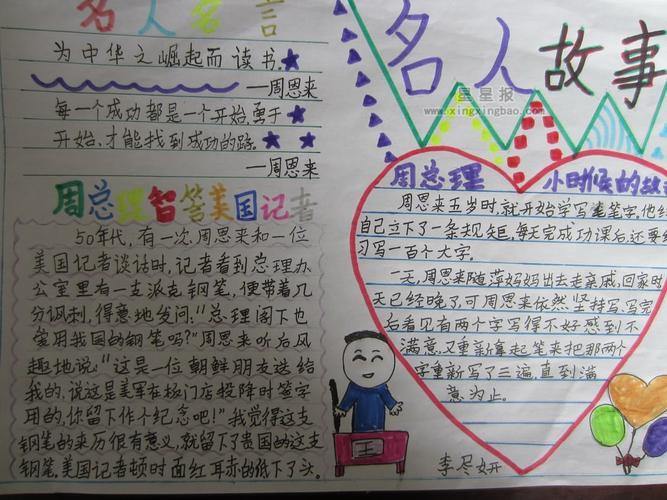 名人名言
为中华之崛起而读书.
—周恩来
每一个成功都是一个开始,勇于
开始,才能找到成功的路.
—周恩来
周总理智答美国记者
50年代,有一次,周恩来和一位
美国记者谈话时,记者看到总理办
公室里有一支派克钢笔,便带着几
分讽刺,得意地发问:"总理阁下也
常用我国的钢笔吗?"周恩来听后风
趣地说:"这是一位朝鲜朋友送给
我的,说这是美军在板门店投降时签字
用的,你留下作个纪念吧!"我觉得这支
钢笔的来历很有意义,就留下了贵国的这支
钢笔.美国记者顿时面红耳赤的低下了头.
名人故事
星星报
www.xingxingbao.com
周总理 小时候的故
周恩来五岁时,就开始学写毛笔字,他给
自己立下了一条规矩,每天完成功课后,还要练
习写一百个大字.
一天,周恩来随萍妈妈出去走亲戚,回家时
天已经晚了,可周恩来依然坚持写,写完
后看见有两个字写得不好感到不
满意,又重新拿起笔来把那两个
字重新写了三遍,直到满
意为止.
王
李冬妍